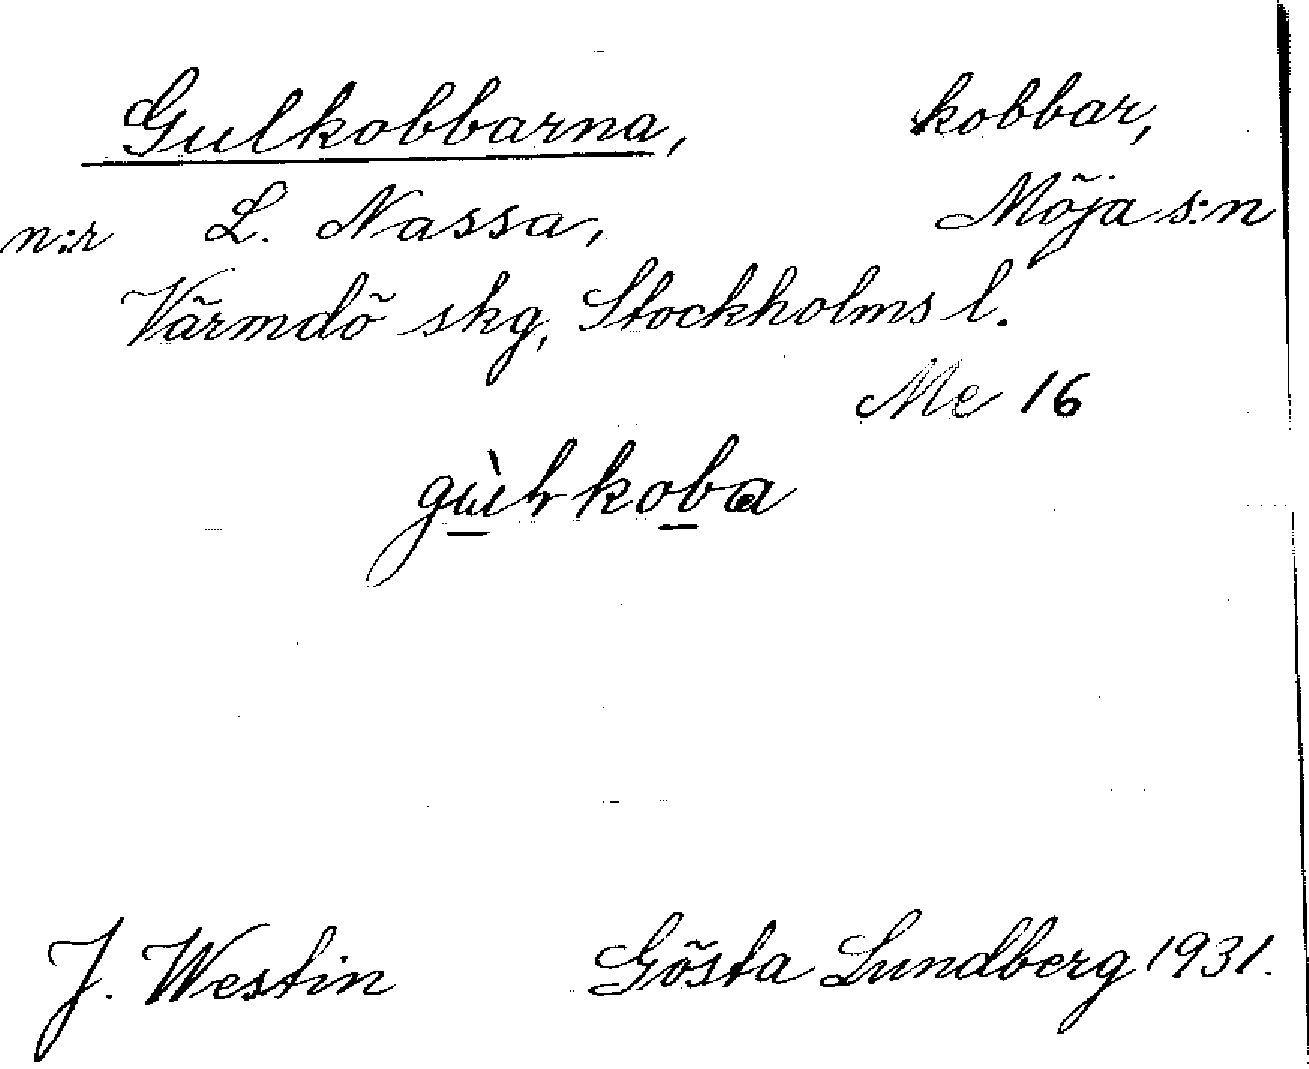 Gulkobbarna, kobbar,
n:r L. Nassa, Möja s:n
Värmdö skg, Stockholms l.
Me 16
J. Westin Gösta Lundberg 1931.